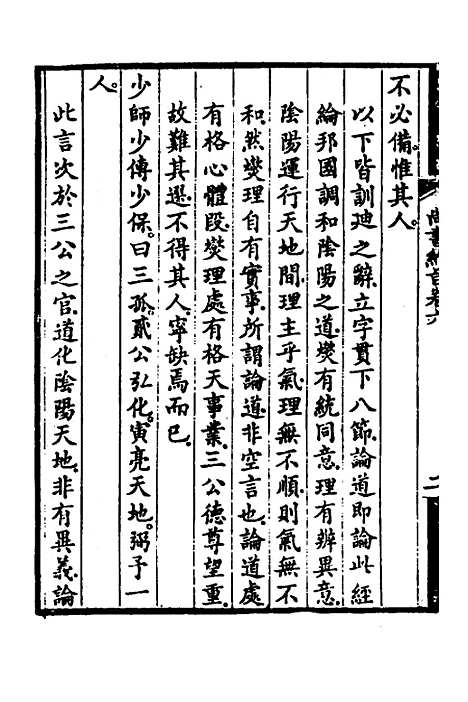 不必備。惟其人。
以下皆訓廸之辭。立字貫下八節。論道即論此經
綸邦國調和陰陽之道。爕有統同意。理有辨異意。
陰陽運行天地間。理主乎氣。理無不順。則氣無不
和。然爕理自有實事。所謂論道。非空言也。論道處
有格心體段。爕理處有格天事業。三公德尊望重。
故難其選。不得其人。寧缺焉而已。
少師少傅少保。曰三孤。貳公弘化。寅亮天地。弼予一
人。
此言次於三公之官。道化陰陽天地。非有異義。論
二